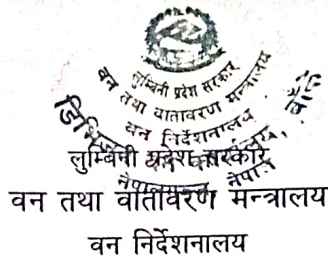 लुम्बिनी प्रदेश सरकार
वन तथा वातावरण मन्त्रालय
वन निर्देशनालय
नेपालगन्ज, नेपाल
लुम्बिनी प्रदेश सरकार
वन तथा वातावरण मन्त्रालय
वन निर्देशनालय